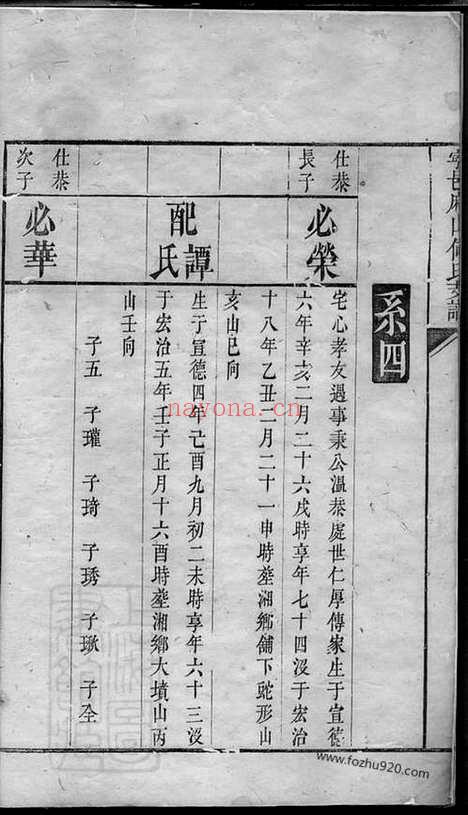 系四
仕㳟長子
必榮
宅心孝友遇事秉公温㳟處世仁厚傳家生于宣德
六年辛亥二月二十六戌時享年七十四沒于宏治
十八年乙丑二月二十一申時塟湘鄉舖下蛇形山
亥山巳向
配譚氏
生于宣德四年己酉九月初二未時享年六十三沒
于宏治五年壬子正月十六酉時塟湘鄉大墳山丙
山壬向
子五 子瓘 子琦 子琇 子璬 子全
仕㳟次子
必華
nayona.cn
www.fozhu920.com